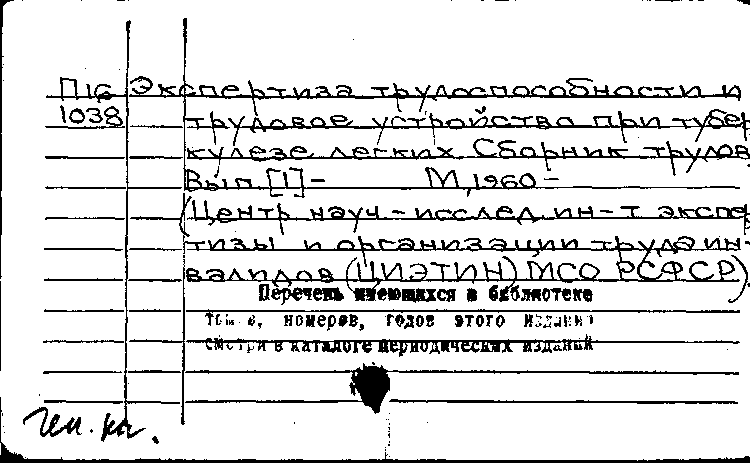 П16 Экспертиза трудоспособности и
1038 трудовое устройство при тубер
кулезе легких. Сборник трудов
Вып. [1]- М, 1960-
(Центр. науч.-исслед. ин-т экспер
тизы и организации труда ин-
валидов (ЦИЭТИН) МСО РСФСР).
Перечень имеющихся в библиотеке
томов, номеров, годов этого издания
смотри в каталоге периодических изданий